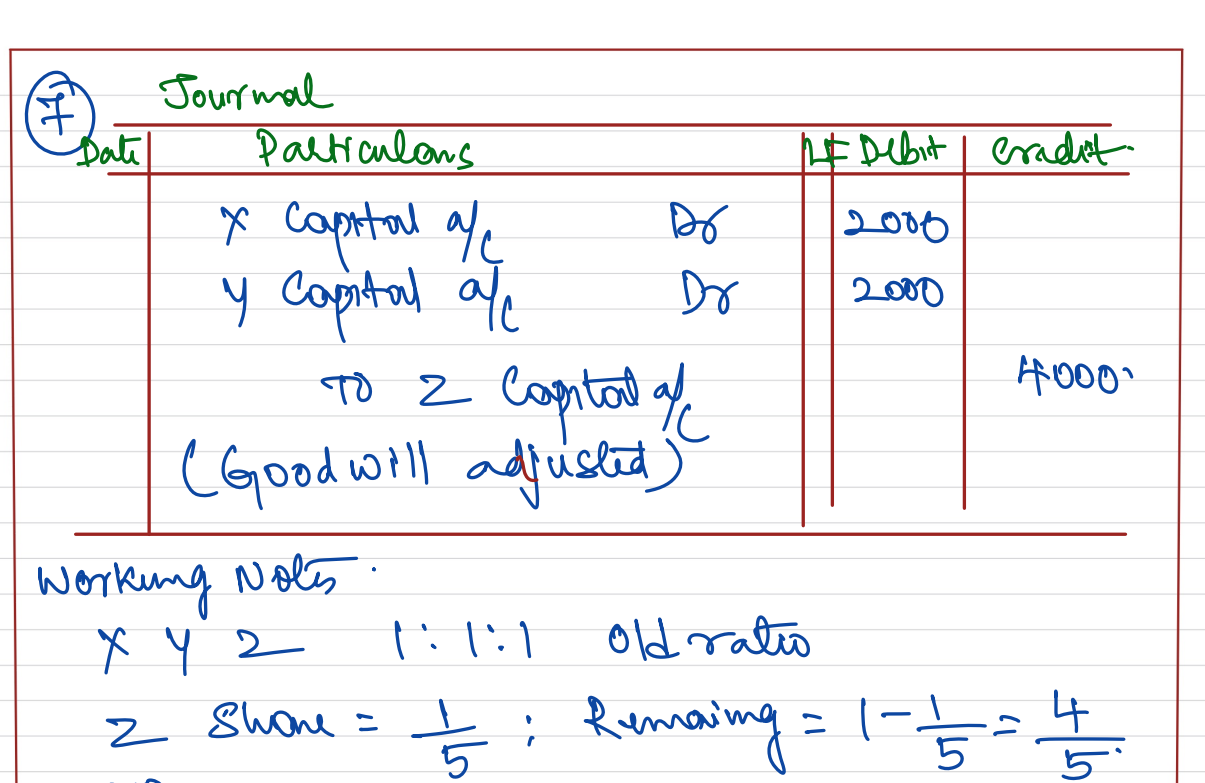 7 Journal
Date Particulars LF Debit Credit
X Capital a/c Dr 2000
Y Capital a/c Dr 2000
To Z Capital a/c 4000
(Goodwill adjusted)
Working Notes
X Y Z 1:1:1 Old ratio
Z Share = 1/5 ; Remaing = 1 - 1/5 = 4/5